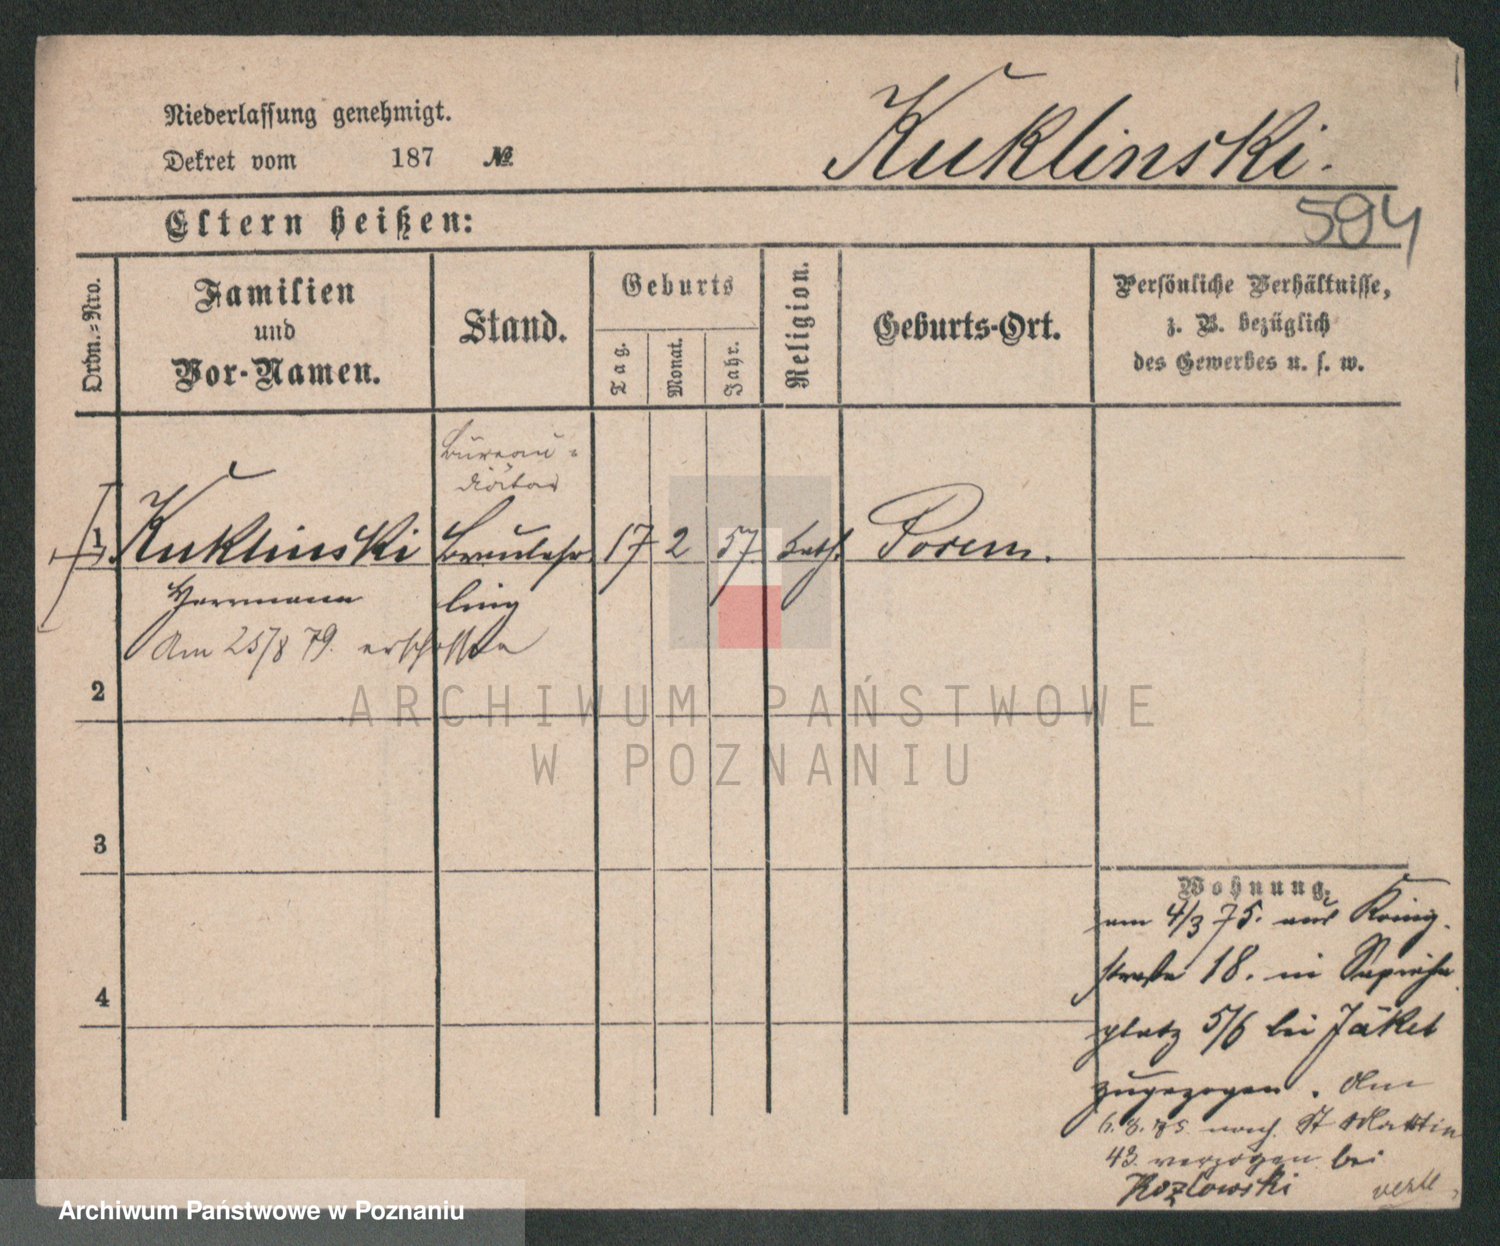 Niederlassung genehmigt.
Dekret vom 187 №
Kuklinski.
594
Eltern heißen:
Ordn.=Nro.
Familien
und
Vor-Namen.
Stand.
Geburts
Tag.
Monat.
Jahr.
Religion.
Geburts-Ort.
Persönliche Verhältnisse,
z. B. bezüglich
des Gewerbes u. s. w.
Bureau-
diätar
1 Kuklinski 17 2 57. kath. Posen.
Herrmann ling
Am 25/8 79. erschossen
2
ARCHIWUM PAŃSTWOWE
W POZNANIU
3
4
Wohnung.
am 4/3 75. aus König-
straße 18. in Sapieha
platz 5/6 bei Jäkel
zugezogen. Am
6.8.75. nach St Martin
43 verzogen bei
Kozlowski
Archiwum Państwowe w Poznaniu